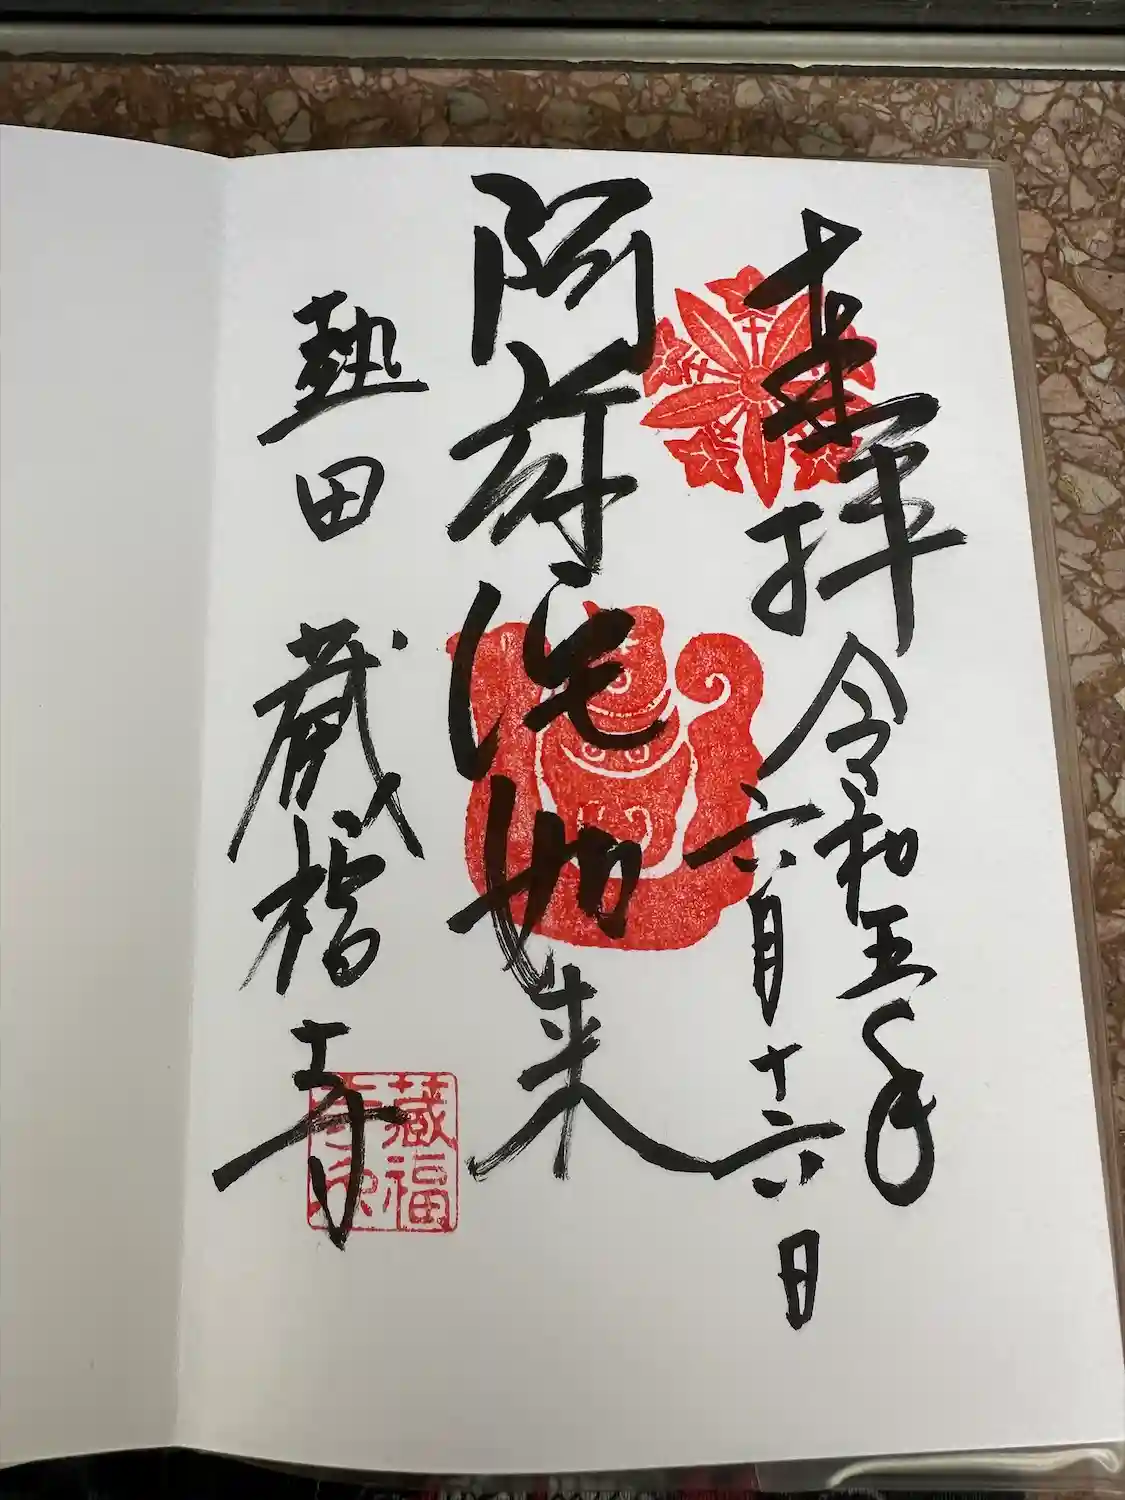 奉拝
令和五年
六月十六日
阿弥陀如来
熱田
蔵福寺
蔵福
寺印